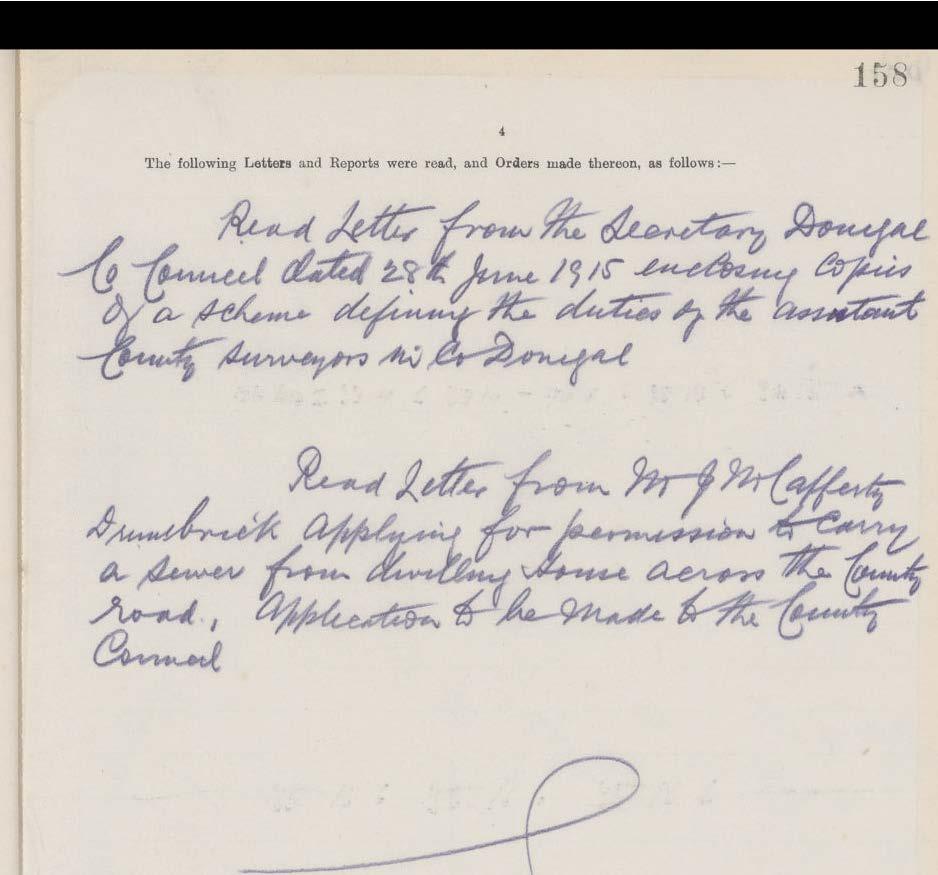 158
4
The following Letters and Reports were read, and Orders made thereon, as follows:—
Read Letter from the Secretary Donegal
Co Council dated 28th June 1915 enclosing Copies
of a scheme defining the duties of the assistant
County Surveyors in Co Donegal
Read Letter from Mr J McCafferty
Drumbrick applying for permission to Carry
a sewer from dwelling House across the County
road, Application to be made to the County
Council